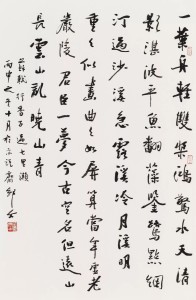 一葉舟輕雙槳鴻驚水天清
影湛波平魚翻藻鑒鷺點烟
汀過沙溪急霜溪冷月溪明
重々似畫曲々如屏算當年虛老
嚴陵君臣一夢今古空名但遠山
長雲山亂曉山青
蘇軾行香子過七里瀨
丙申之年十月於京